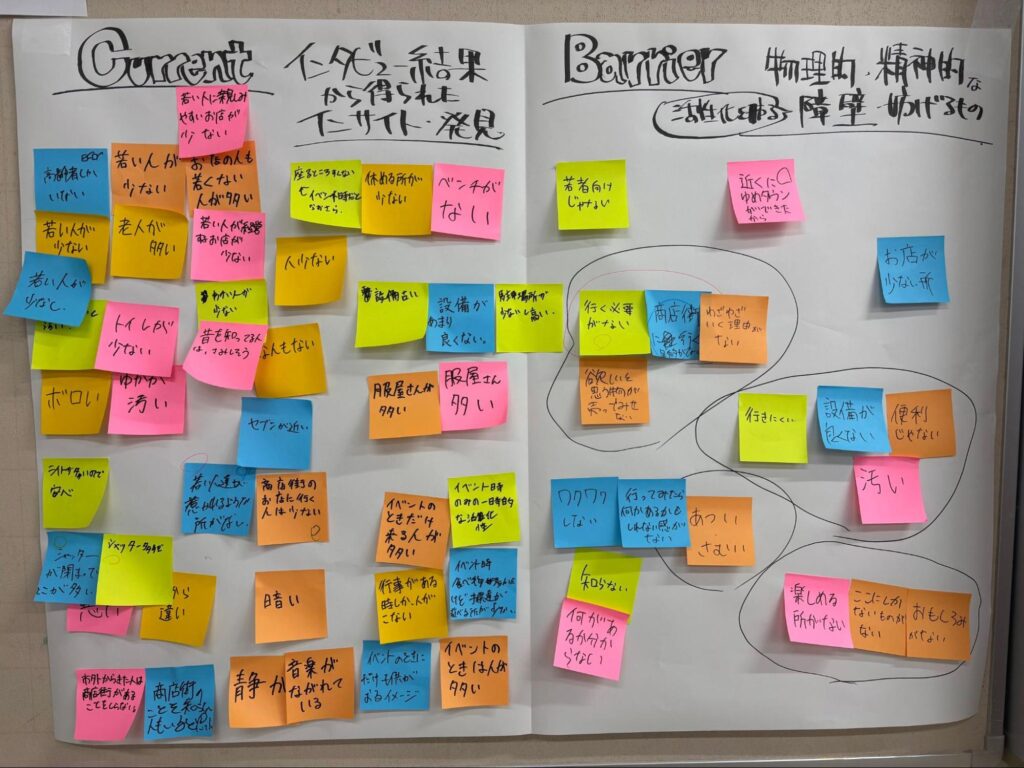 Current
インタビュー結果
から得られた
インサイト・発見
若い人に親しみ
やすいお店が
少ない
高齢者しか
いない
若い人が
少ない
お店の人も
若くない
人が多い
若い人が
少ない
老人が
多い
若い人が経営
するお店が
少ない
若い人が
少なし
わかい人が
少ない
トイレが
少ない
昔を知ってる人
は、さみしそう
なんもない
ボロい
ゆかが
汚い
セブンが近い
人少ない
休める所が
少ない
ベンチが
ない
設備古い
設備が
あまり
良くない。
服屋さんが
多い
服屋さん
多い
商店街の
お店に行く
人は少ない
シャッター
が閉まって
シャッター多め
違い
暗い
イベントの
ときだけ
来る人が
多い
イベント時
のみの一時的
な活性化
行事がある
時しか人が
こない
イベント時
ホタカらきた人は
商店街がある
ことをしらない
商店街の
ことを知らない
静か
音楽が
ながれて
いる
イベントのときに
イベントの
ときは人が
多い
Barrier
物理的・精神的な
活性化を
障壁 妨げるもの
若者向け
じゃない
近くに
ゆめタウン
ができた
から
お店が
少なし所
行く必要
がない
商店街
に
わざわざ
いく理由が
ない
欲しいと
思う物が
売ってない
行きにくい
設備が
良くない
便利
じゃない
汚い
ワクワク
しない
行ってみたら
何かあるかも
しれない感が
ない
あつい
さむい
知らない
何があ
るか分か
らない
楽しめる
所がない
ここにしか
ないものが
ない
おもしろみ
がない